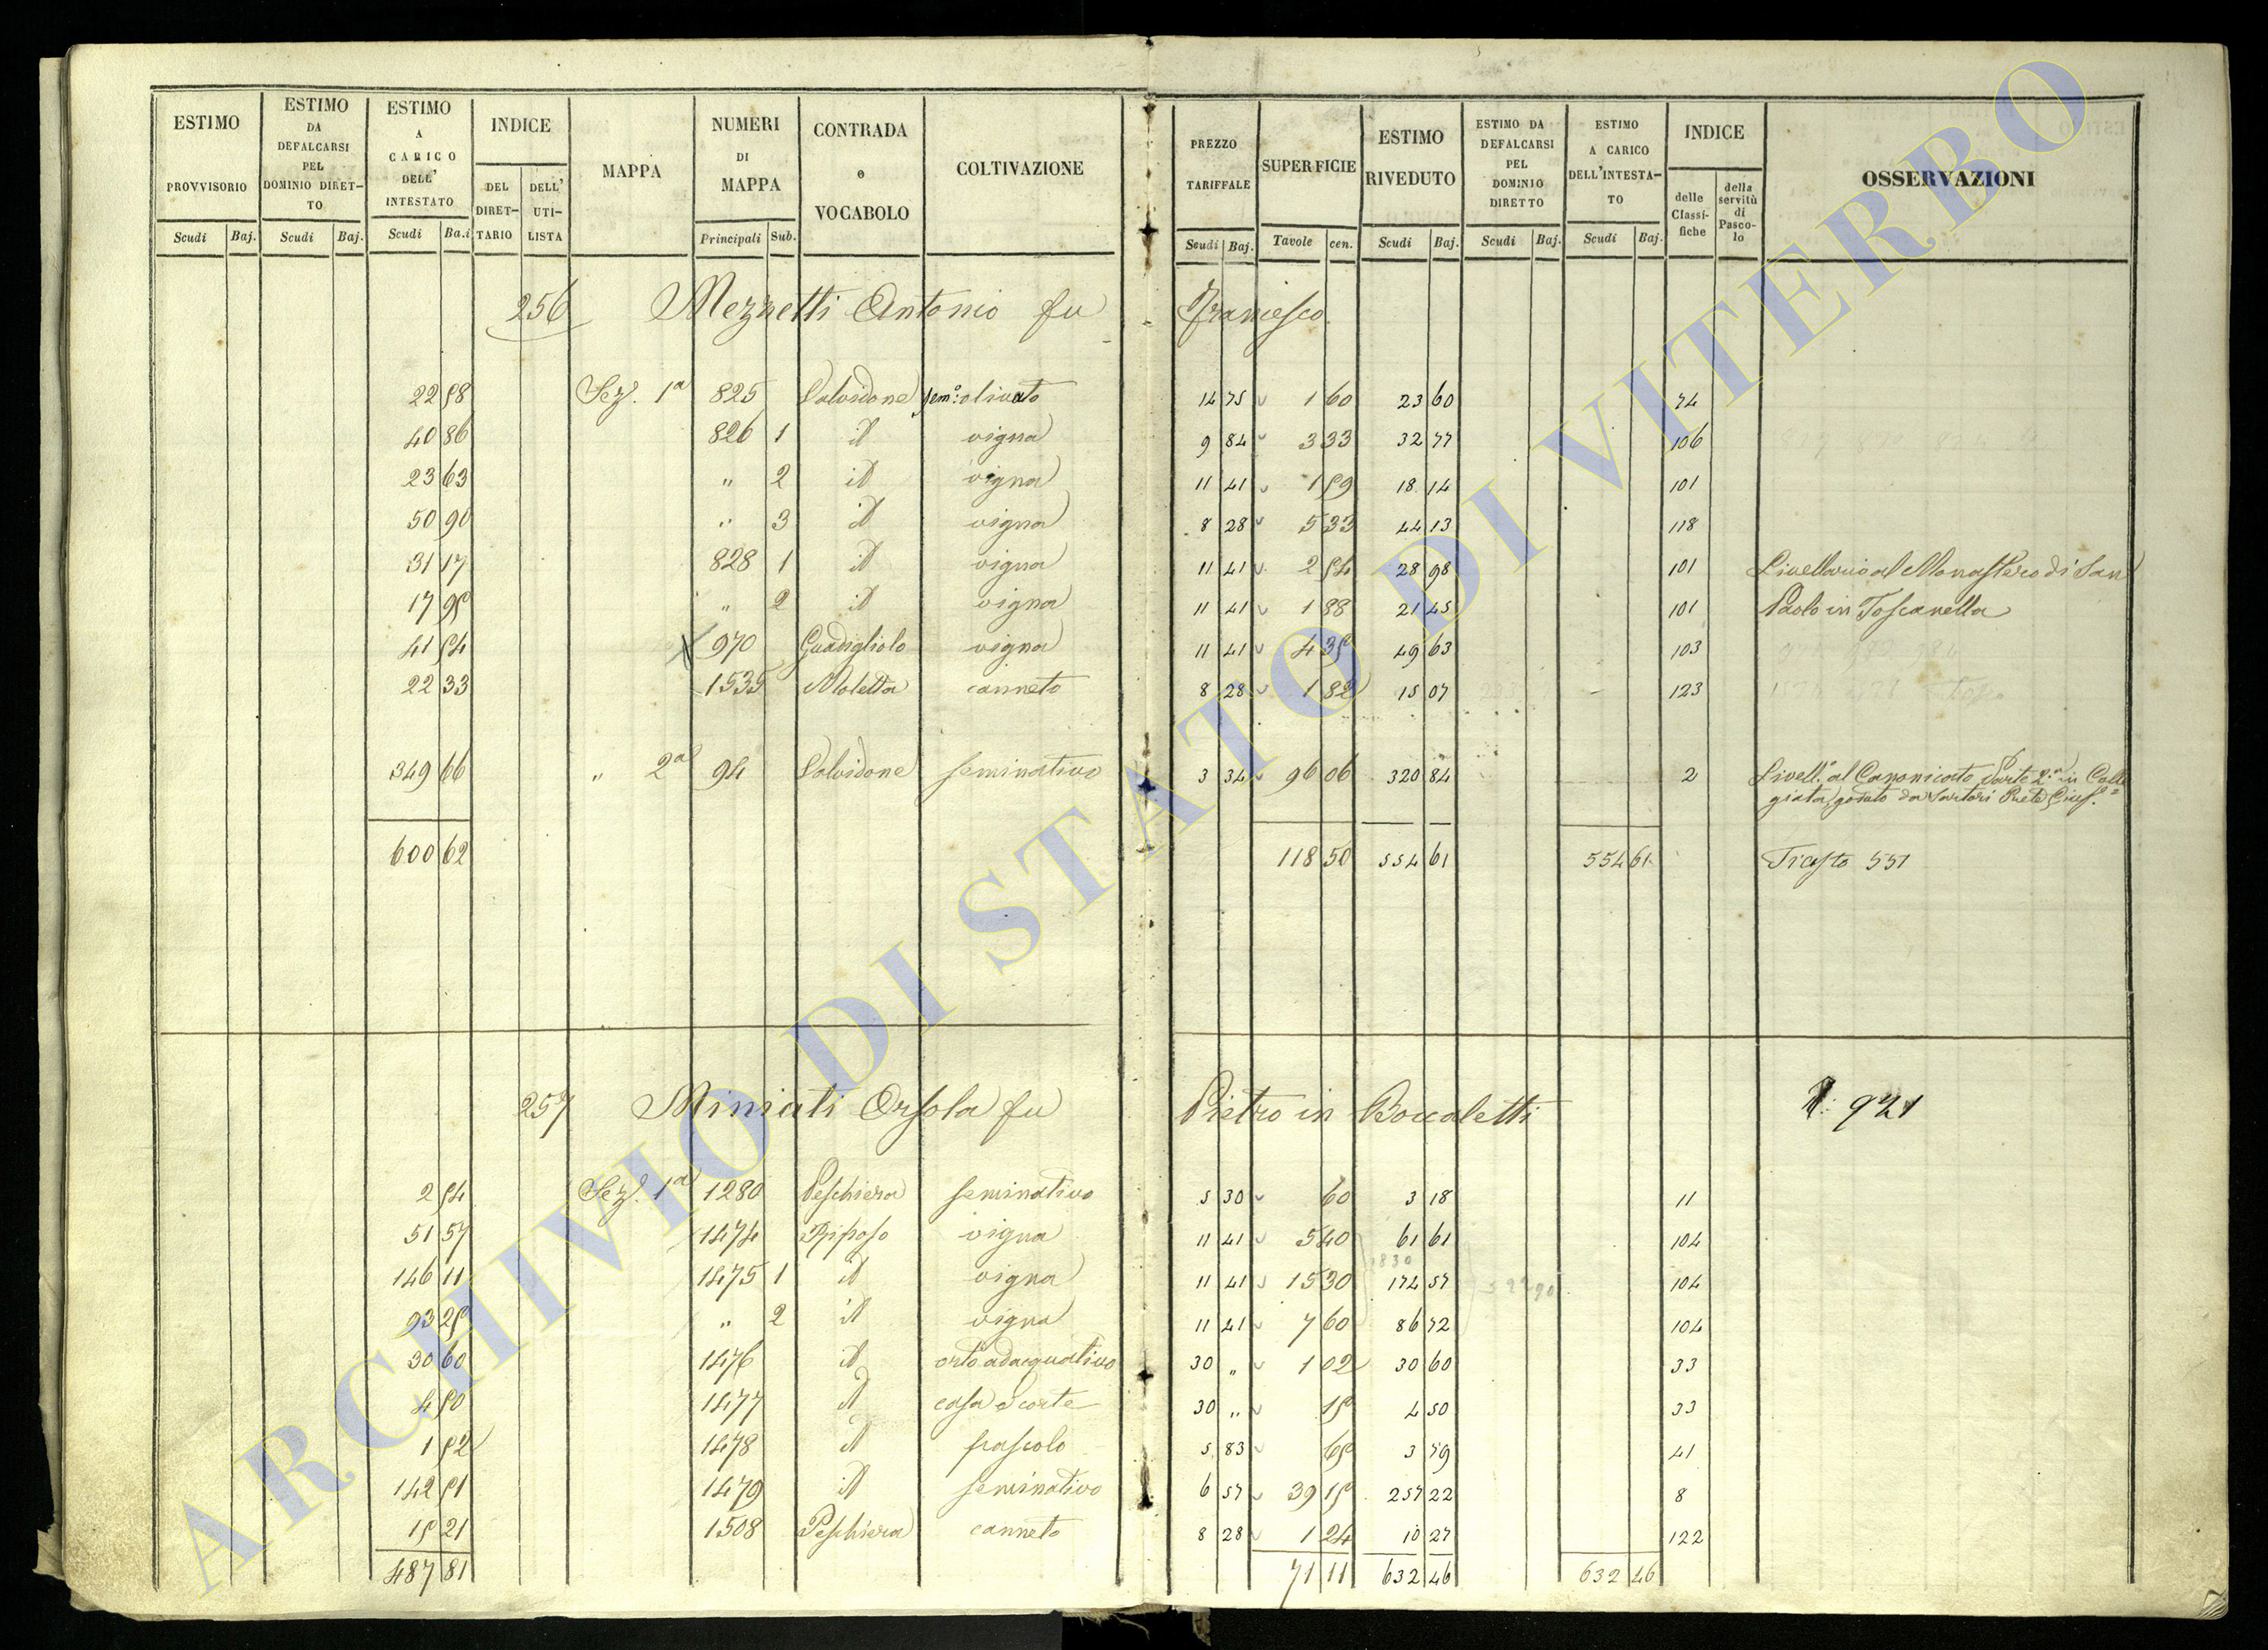 ESTIMO PROVVISORIO Scudi Baj.
ESTIMO DA DEFALCARSI PEL DOMINIO DIRETTO Scudi Baj.
ESTIMO A CARICO DELL' INTESTATO Scudi Ba.i
INDICE DEL DIRETTARIO DELL' UTILISTA
MAPPA
NUMERI DI MAPPA Principali Sub.
CONTRADA o VOCABOLO
COLTIVAZIONE
PREZZO TARIFFALE Scudi Baj.
SUPERFICIE Tavole cen.
ESTIMO RIVEDUTO Scudi Baj.
ESTIMO DA DEFALCARSI PEL DOMINIO DIRETTO Scudi Baj.
ESTIMO A CARICO DELL'INTESTATO Scudi Baj.
INDICE delle Classifiche della servitù di Pascolo
OSSERVAZIONI
256 Mezzetti Antonio fu Francesco
22 58 Sez. 1a 825 Valvidone sem.o olivato 14 75 1 60 23 60 74
40 86 826 1 id vigna 9 84 3 33 32 77 106
23 63 " 2 id vigna 11 41 1 59 18 14 101
50 90 " 3 id vigna 8 28 5 33 44 13 118
31 17 828 1 id vigna 11 41 2 54 28 98 101 Livellario al Monastero di San
17 95 " 2 id vigna 11 41 1 88 21 45 101 Paolo in Toscanella
41 54 970 Guadigliolo vigna 11 41 4 35 49 63 103
22 33 1535 Moletta canneto 8 28 1 82 15 07 123
349 66 " 2a 94 Valvidone seminativo 3 34 96 06 320 84 2 Livell.o al Canonicato Parte 2.a in Colle
giata, goduto da Sartori Prete Gius.e
600 62 118 50 554 61 554 61 Ticasto 551
257 Miniati Orsola fu Pietro in Boccaletti 921
2 54 Sez. 1a 1280 Peschiera seminativo 5 30 60 3 18 11
51 57 1474 Riposo vigna 11 41 5 40 61 61 104
146 11 1475 1 id vigna 11 41 15 30 174 57 104
93 25 " 2 id vigna 11 41 7 60 86 72 104
30 60 1476 id orto adacquativo 30 " 1 02 30 60 33
4 50 1477 id casa e corte 30 " 15 4 50 33
1 52 1478 id pascolo 5 83 65 3 79 41
142 51 1479 id seminativo 6 57 39 15 257 22 8
15 21 1508 Peschiera canneto 8 28 1 24 10 27 122
487 81 71 11 632 46 632 46
ARCHIVIO DI STATO DI VITERBO